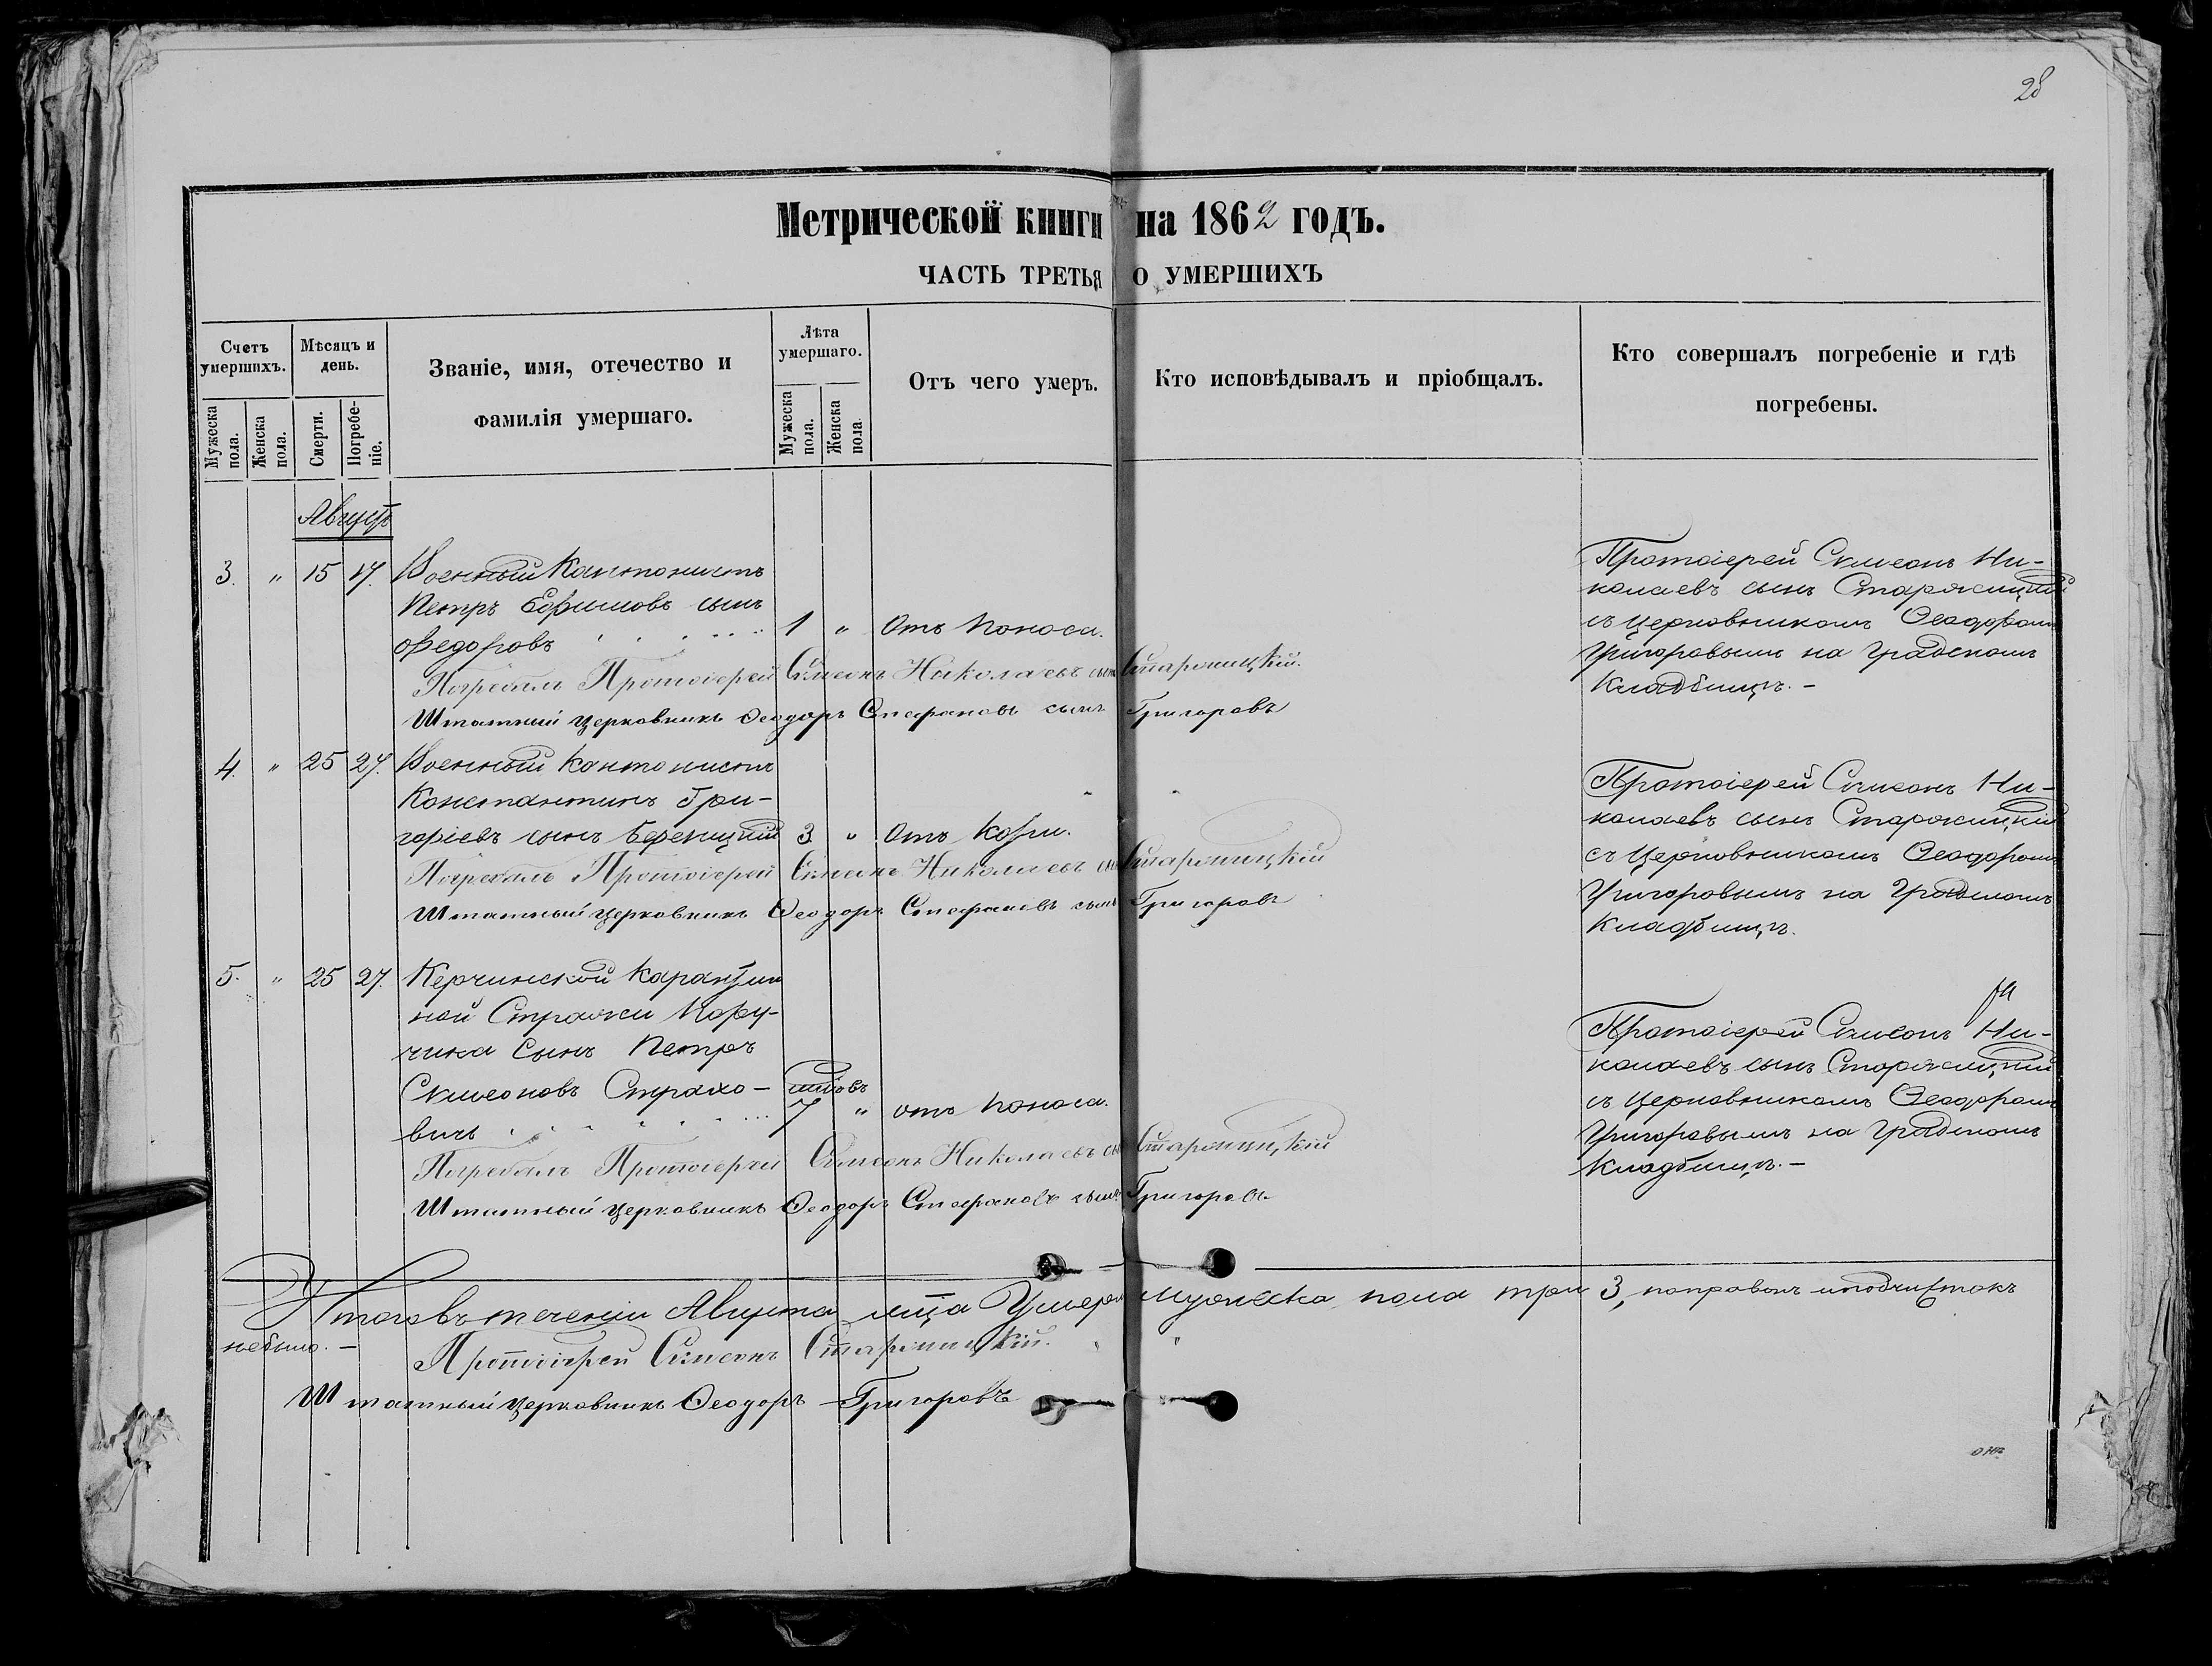 28
Метрической книги на 1862 годъ.
ЧАСТЬ ТРЕТЬЯ О УМЕРШИХЪ
Счетъ умершихъ.
Мужеска пола.
Женска пола.
Мѣсяцъ и день.
Смерти.
Погребе-ніе.
Званіе, имя, отечество и
фамилія умершаго.
Лѣта умершаго.
Мужеска пола.
Женска пола
Отъ чего умеръ.
Кто исповѣдывалъ и пріобщалъ.
Кто совершалъ погребеніе и гдѣ
погребены.
Августъ
3. " 15 17. Военный Кантонистъ
Петръ Ефимовъ сынъ
Федоровъ 1 " Отъ Поноса.
Протоіерей Симеонъ Ни-
колаевъ сынъ Старжицкій
съ Церковникомъ Ѳеодоромъ
Григоровымъ на Градскомъ
Кладбищѣ.-
Погребалъ Протоіерей Симеонъ Николаевъ сынъ Старжицкій.
Штатный церковникъ Ѳеодоръ Стефановъ сынъ Григоровъ
4. " 25 27. Военный Кантонистъ
Константинъ Гри-
горіевъ сынъ Березицкій 3 " Отъ Кори.
Протоіерей Симеонъ Ни-
колаевъ сынъ Старжицкій
съ Церковникомъ Ѳеодоромъ
Григоровымъ на Градскомъ
Кладбищѣ.
Погребалъ Протоіерей Симеонъ Николаевъ Старжицкій
Штатный церковникъ Ѳеодоръ Стефановъ сынъ Григоровъ
5. " 25 27. Керчинской Карантин
ной Стражи Пору-
чика Сынъ Петръ
Симеоновъ Страхо-
вичъ мѣсовъ 7 " отъ поноса.
Протоіерей Симеонъ Ни-
колаевъ сынъ Старжицкій
съ Церковникомъ Ѳеодоромъ
Григоровымъ на Градскомъ
Кладбищѣ.-
Погребалъ Протоіерей Симеонъ Николаевъ Старжицкій
Штатный церковникъ Ѳеодоръ Стефановъ сынъ Григоровъ
Итого въ теченіи Августа мца Умерло мужеска пола три 3, поправокъ и подчистокъ
небыло.-
Протоіерей Симеонъ Старжицкій.
Штатный церковникъ Ѳеодоръ Григоровъ